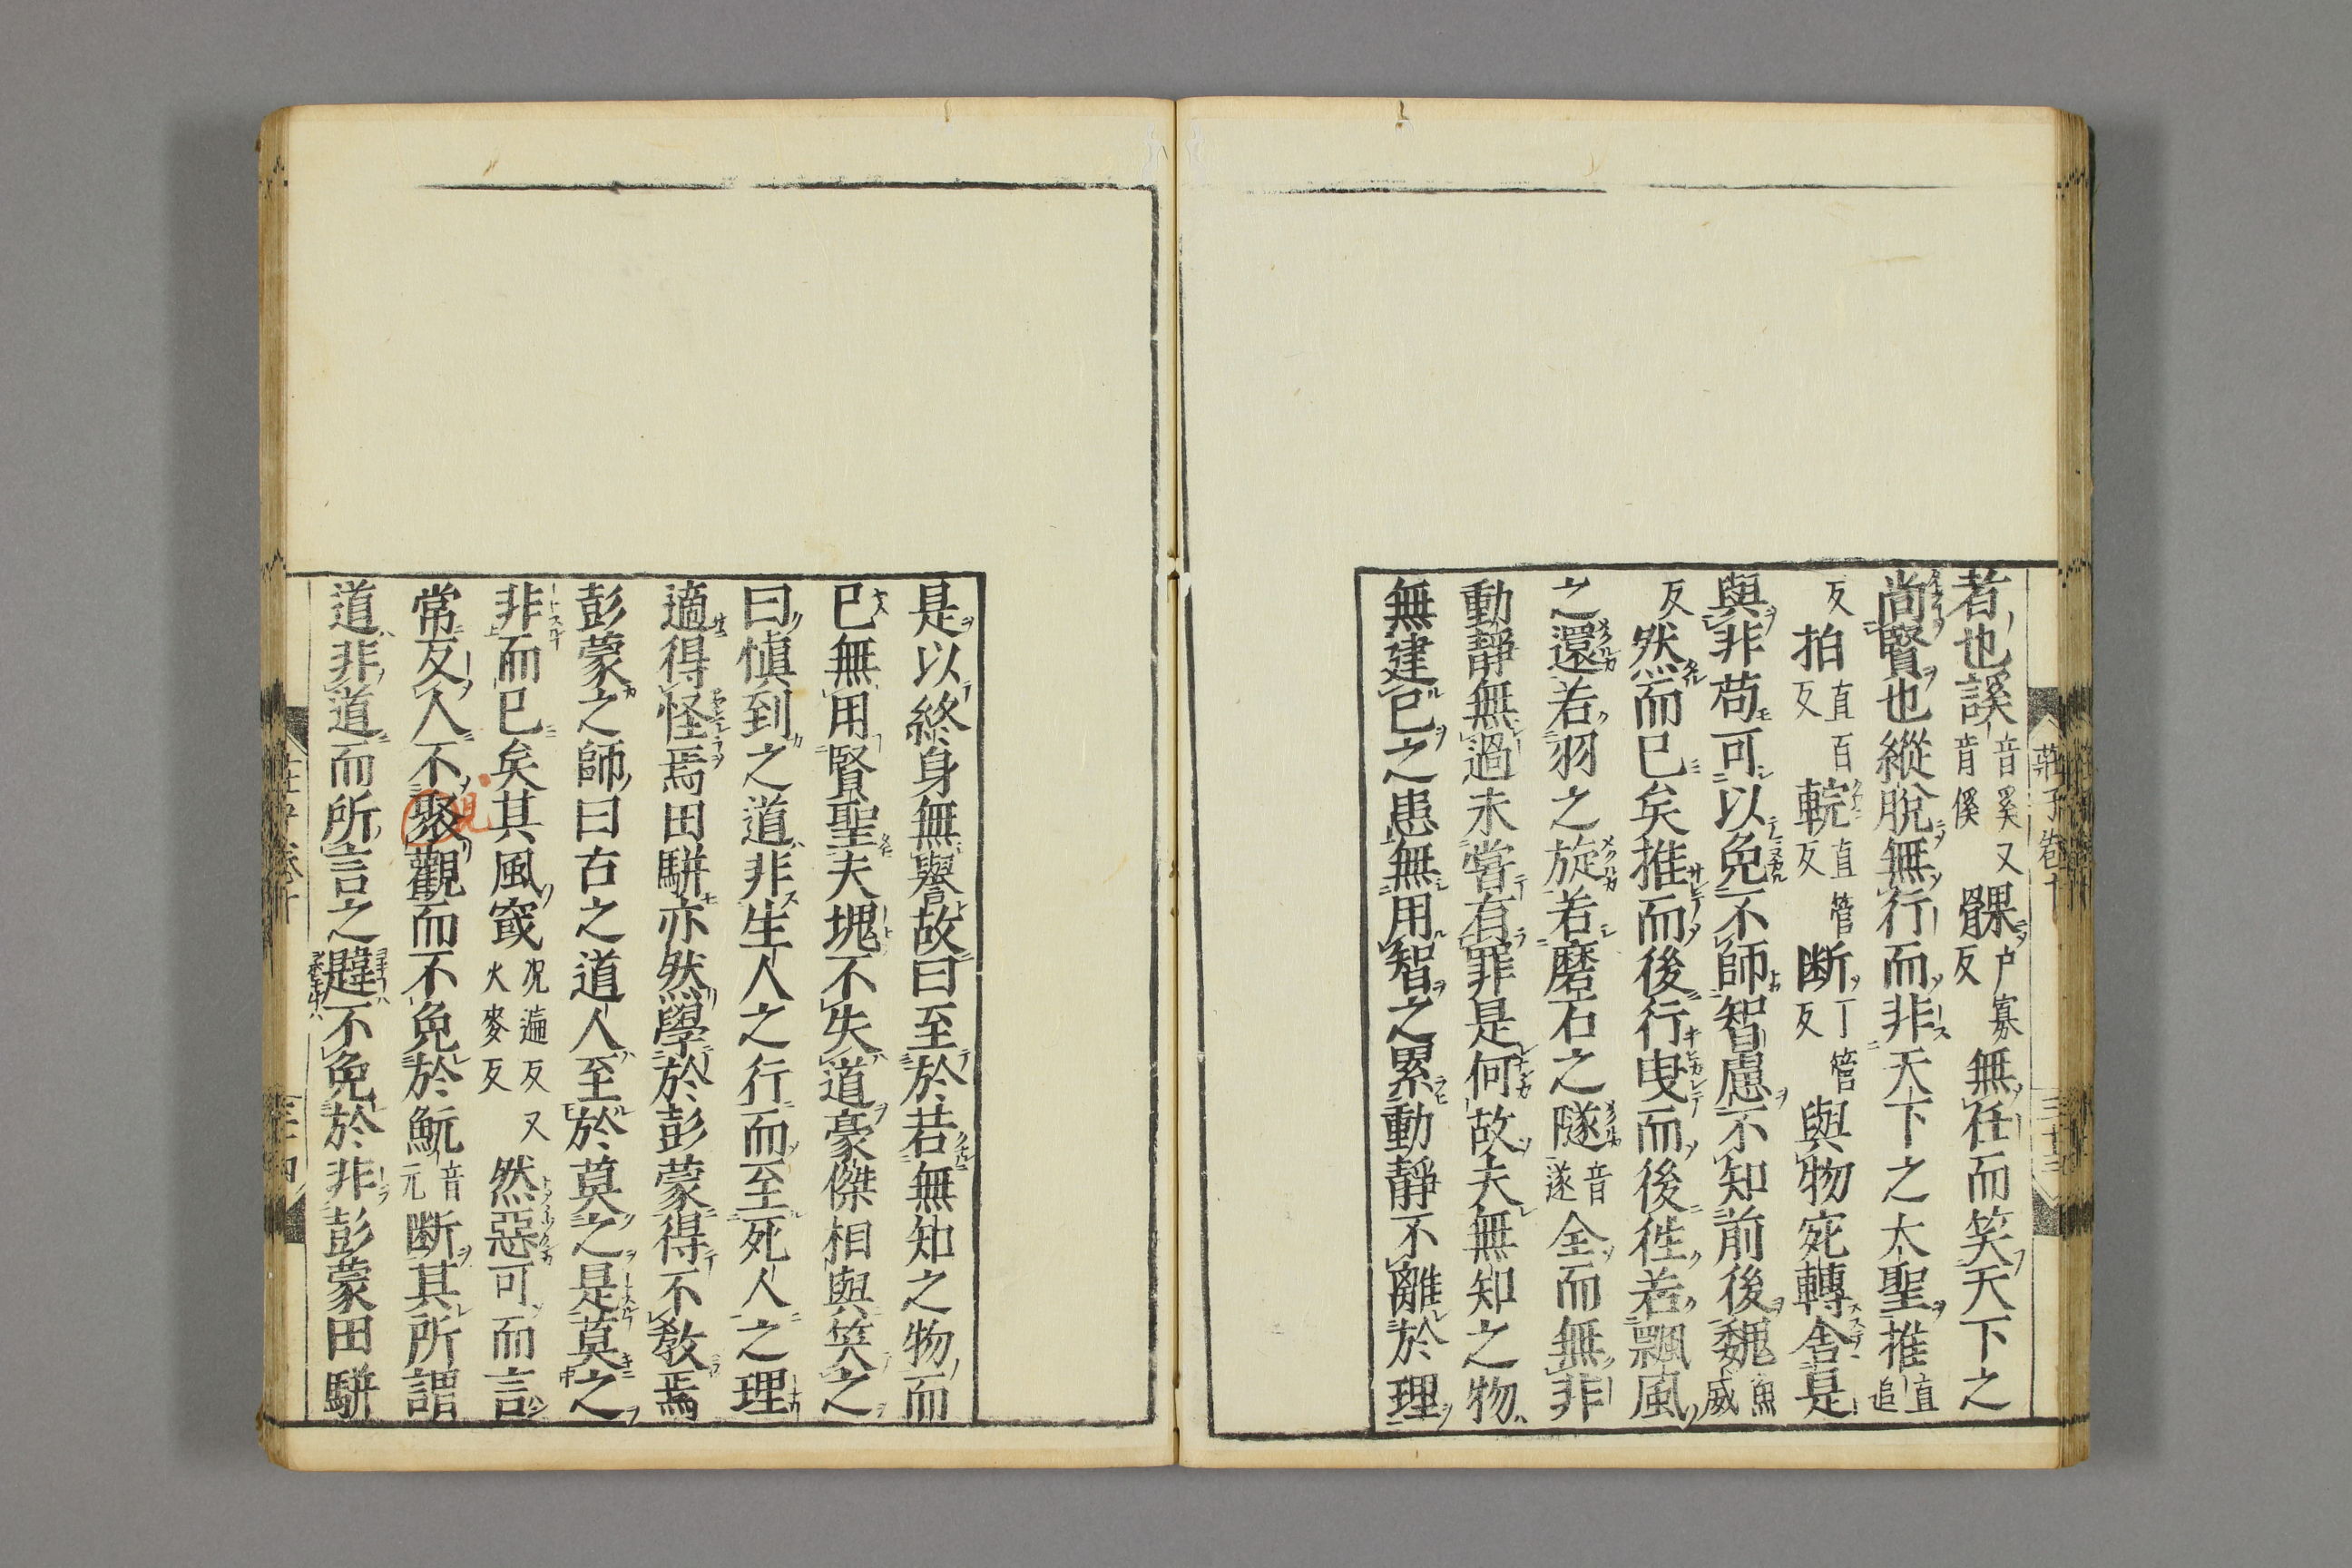 莊子卷十
三十三
者也謑音奚又音傒髁户寡反無任而笑天下之
尚賢也縱脫無行而非天下之大聖推直追
反拍直百反輐直管反断丁管反與物宛轉舍是
與非苟可以免不師智慮不知前後魏魚威
反然而已矣推而後行曳而後徃若飄風
之還若羽之旋若磨石之隧音遂全而無非
動靜無過未嘗有罪是何故夫無知之物
無建已之患無用智之累動靜不離於理
是以終身無譽故曰至於若無知之物而
已無用賢聖夫塊不失道豪傑相與笑之
曰慎到之道非生人之行而至死人之理
適得怪焉田駢亦然學於彭蒙得不教焉
彭蒙之師曰古之道人至於莫之是莫之
非而已矣其風窢况遍反又火麥反然惡可而言
常反人不聚觀而不免於魭音元断其所謂
見
道非道而所言之韙不免於非彭蒙田駢